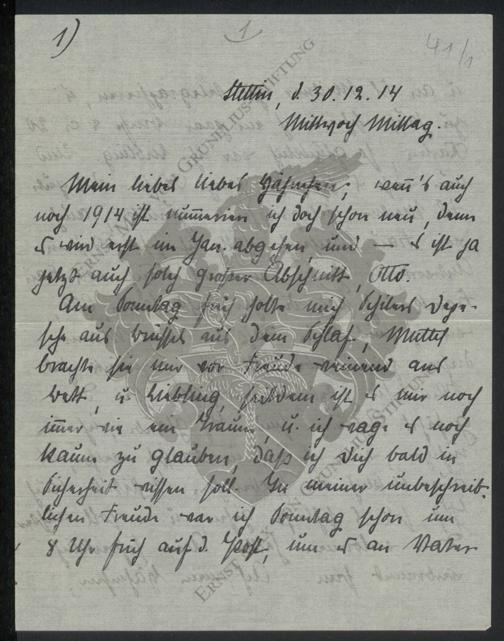 1)
1
41/1
Stettin, d. 30.12.14
Mittwoch Mittag.
Mein liebes liebes ; wenn's auch
noch 1914 ist nummerier ich doch schon neu, denn
es wird erst im Jan. abgehen und — es ist ja
jetzt auch solch großer Abschnitt, Otto.
Am Sonntag früh holte mich Depe-
sche aus Brüssel aus dem Schlaf, Mutter
brachte sie mir vor Freude weinend ans
Bett, u. Liebling, seitdem ist es mir noch
immer wie ein Traum u. ich wage es noch
kaum zu glauben, daß ich Dich bald in
Sicherheit wissen soll. In meiner unbeschreib-
lichen Freude war ich Sonntag schon um
8 Uhr früh auf d. Post, um es an Vater